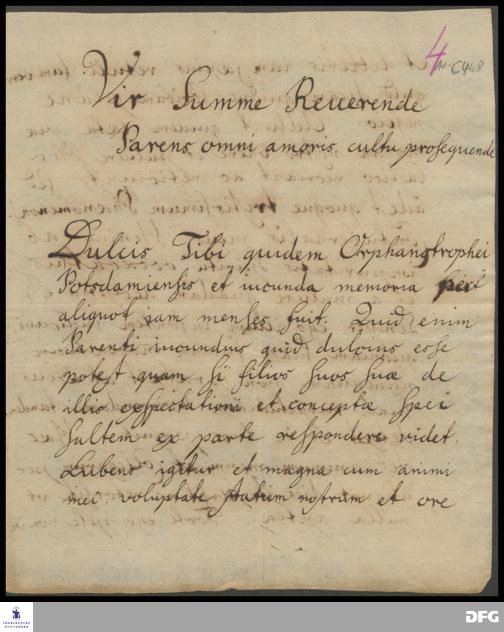 4
C468
Vir Summe Reuerende
Parens omni amoris cultu prosequende
Dulcis Tibi quidem Orphanotrophei
Potsdamiensis et iucunda memoria per
aliquot iam menses fuit. Quid enim
Parenti iucundius quid dulcius esse
potest quam si filios suos suae de
illis exspectationi et conceptae spei
saltem ex parte respondere videt.
Lubens igitur et magna cum animi
mei voluptate statum nostrum et ore
FRANCKESCHE
STIFTUNGEN
DFG